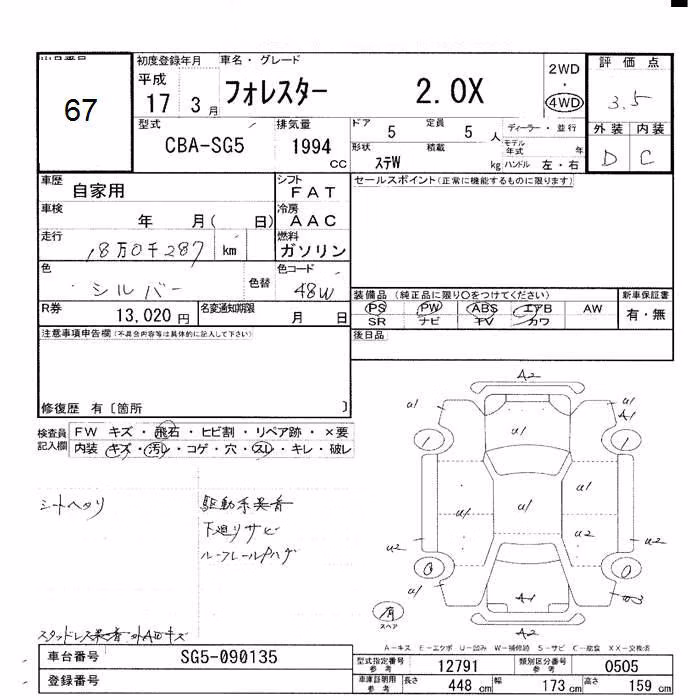 67
初度登録年月 車名・グレード
平成 17 3月
フォレスター 2.0X
2WD ・ 4WD
評価点
3.5
外装 内装
D C
型式 排気量
CBA-SG5 1994 CC
ドア 5 定員 5 人
形状 ステW 積載 kg
ディーラー・並行
モデル年式 年
ハンドル 左・右
車歴 自家用
シフト FAT
セールスポイント(正常に機能するものに限ります)
車検 年 月( 日)
冷房 AAC
走行 18万0千287 km
燃料 ガソリン
色 シルバー 色替
色コード 48W
R券 13,020円
名変通知期限 月 日
装備品(純正品に限り○をつけてください)
PS PW ABS エアB AW
SR ナビ TV カワ
新車保証書
有・無
注意事項申告欄(不具合内容等は具体的に記入して下さい)
後日品
修復歴 有〔箇所 〕
検査員記入欄
FW キズ・飛石・ヒビ割・リペア跡・×要
内装 キズ・汚レ・コゲ・穴・スレ・キレ・破レ
シートヘタリ
駆動系異音
下廻りサビ
ルーフレールPハゲ
A2
U1 U1 A1
U1
U1 U1 U1
U2 U2 U2
U1 A1 W3
A2
有
スペア
A-キズ E-エクボ U-凹み W-補修跡 S-サビ C-腐食 XX-交換済
車台番号 SG5-090135
登録番号
型式指定番号 参考 12791
類別区分番号 参考 0505
車庫証明用 参考 長さ 448 cm 幅 173 cm 高さ 159 cm